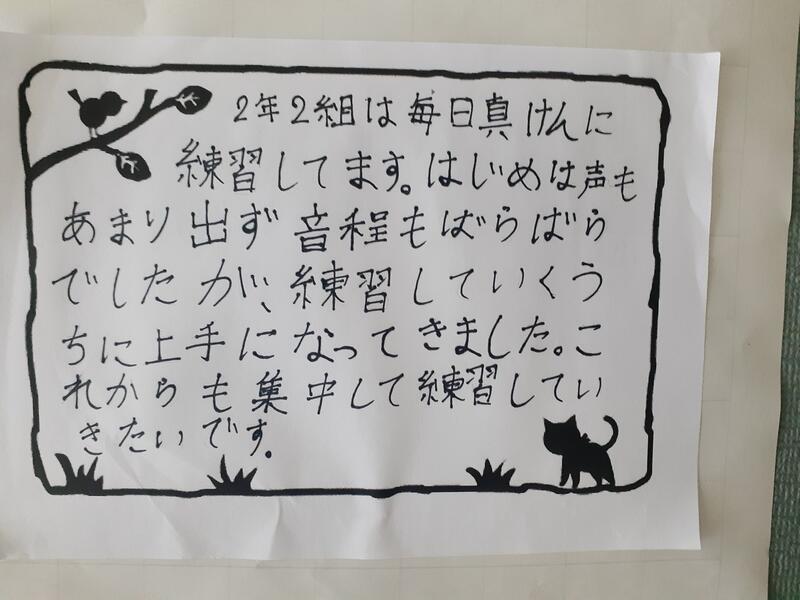 2年2組は毎日真けんに
練習してます。はじめは声も
あまり出ず音程もばらばら
でしたが、練習していくう
ちに上手になってきました。こ
れからも集中して練習してい
きたいです。